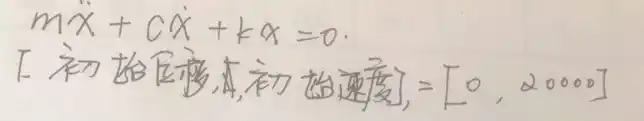 mẍ + cẋ + kx = 0.
[初始位移, 初始速度], = [0, 20000]